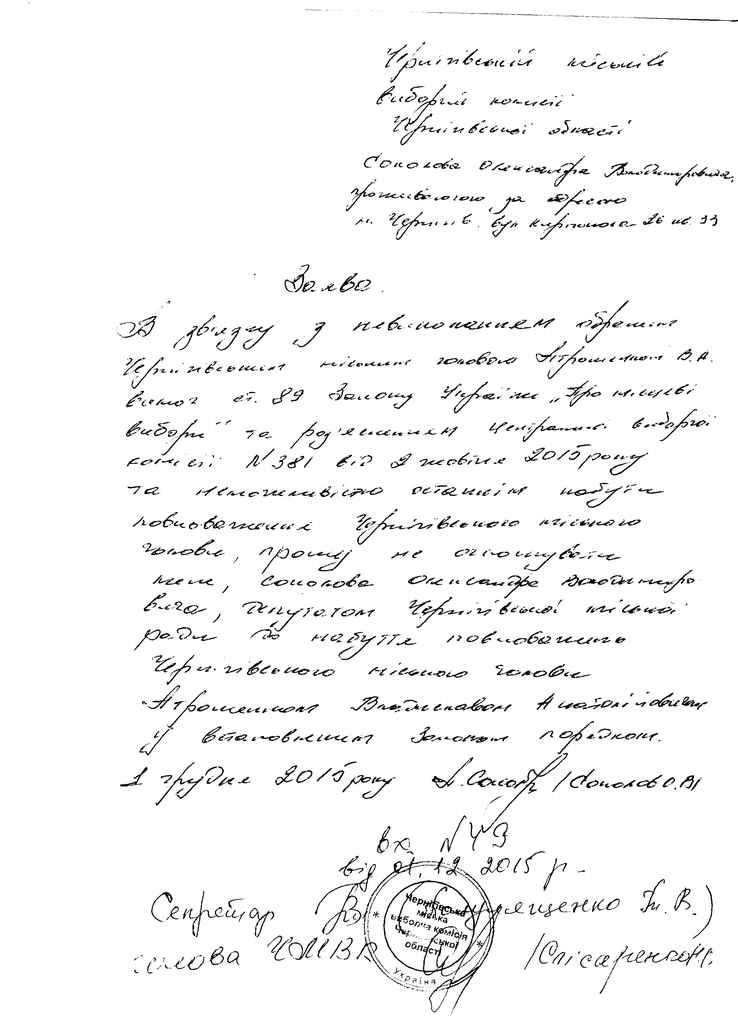 Чернігівській міській
виборчій комісії
Чернігівської області
Соколова Олександра Володимировича,
проживаючого за адресою
м. Чернігів, вул 26 кв. 33
Заява.
В зв'язку з невиконанням обраним
Чернігівським міським головою Атрошенком В.А.
вимог ст. 89 Закону України „Про місцеві
вибори" та роз'ясненням Центральної виборчої
комісії N 381 від 2 жовтня 2015 року
та неможливістю останнім набути
повноваження Чернігівського міського
голови, прошу не оголошувати
мене, Соколова Олександра Володимиро
вича, депутатом Чернігівської міської
ради до набуття повноважень
Чернігівського міського голови
Атрошенком Владиславом Анатолійовичем
у встановленим Законом порядком.
1 грудня 2015 року /Соколов О.В/
вх. N 43
від 01.12 2015 р.
Секретар Ін. В.)
голова ЧМВК /Слісаренко
Чернігівська
міська
виборча комісія
Чернігівської
області
Україна